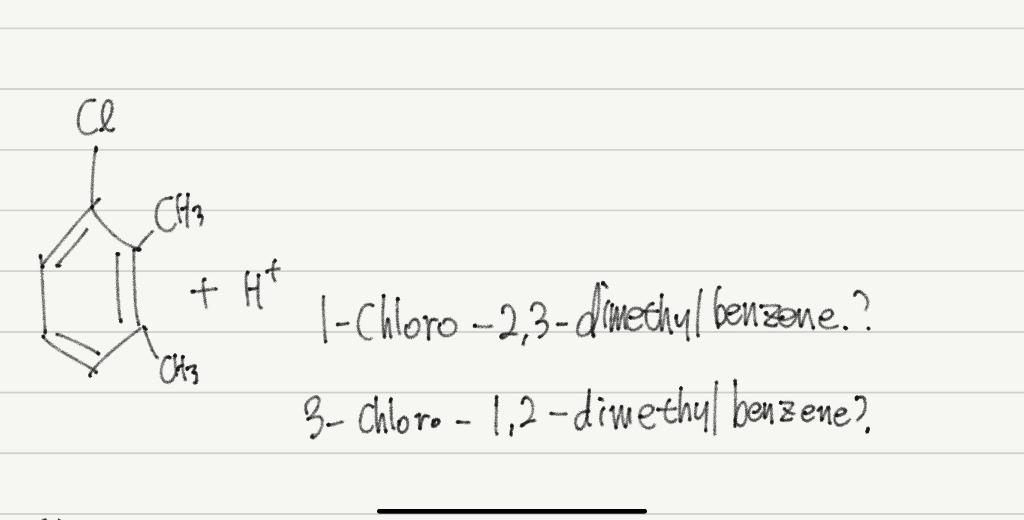 Cl
CH3
+ H+
1-Chloro-2,3-dimethylbenzene.?
CH3
3-Chloro-1,2-dimethylbenzene?